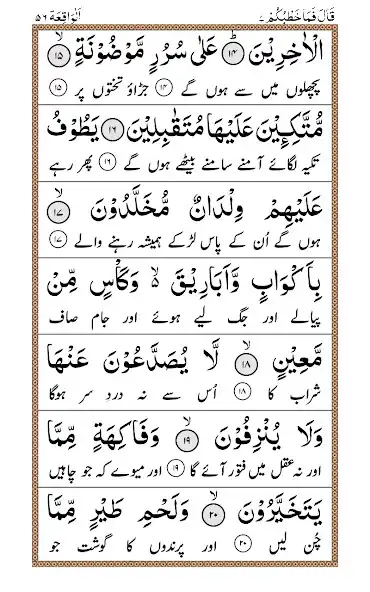 قَالَ فَمَا خَطْبُكُمْ ٢٧ اَلْوَاقِعَة ٥٦
الْاٰخِرِيْنَ ۱۴ عَلٰى سُرُرٍ مَّوْضُوْنَةٍ ۱۵
پچھلوں میں سے ہوں گے ۱۴ جڑاؤ تختوں پر ۱۵
مُّتَّكِـِٕيْنَ عَلَيْهَا مُتَقٰبِلِيْنَ ۱۶ يَطُوْفُ
تکیہ لگائے آمنے سامنے بیٹھے ہوں گے ۱۶ پھر رہے
عَلَيْهِمْ وِلْدَانٌ مُّخَلَّدُوْنَ ۱۷
ہوں گے اُن کے پاس لڑکے ہمیشہ رہنے والے ۱۷
بِاَكْوَابٍ وَّاَبَارِيْقَ ۙ۬ وَكَاْسٍ مِّنْ
پیالے اور جگ لیے ہوئے اور جام صاف
مَّعِيْنٍ ۱۸ لَّا يُصَدَّعُوْنَ عَنْهَا
شراب کا ۱۸ اُس سے نہ درد سر ہوگا
وَلَا يُنْزِفُوْنَ ۱۹ وَفَاكِهَةٍ مِّمَّا
اور نہ عقل میں فتور آئے گا ۱۹ اور میوے کہ جو چاہیں
يَتَخَيَّرُوْنَ ۲۰ وَلَحْمِ طَيْرٍ مِّمَّا
چُن لیں ۲۰ اور پرندوں کا گوشت جو